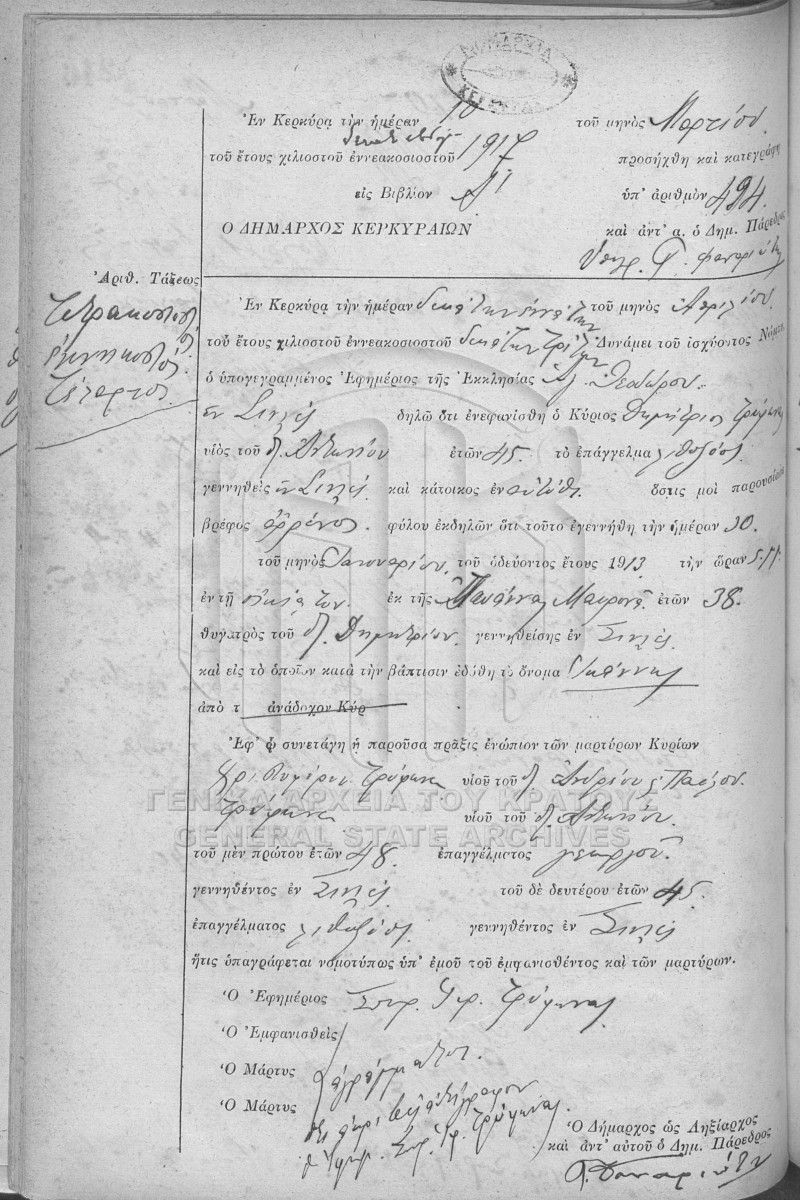 ΔΗΜΑΡΧΙΑ
ΚΕΡΚΥΡΑΣ
Ἐν Κερκύρᾳ τὴν ἡμέραν 10 τοῦ μηνὸς Μαρτίου
τοῦ ἔτους χιλιοστοῦ ἐννεακοσιοστοῦ 1917 προσήχθη καὶ κατεγράφη
εἰς Βιβλίον ὑπ' ἀριθμὸν 494.
Ο ΔΗΜΑΡΧΟΣ ΚΕΡΚΥΡΑΙΩΝ καὶ ἀντ' α. ὁ Δημ. Πάρεδρος
Ἀριθ. Τάξεως
Τετρακοσιοστ
ἐννενηκοστὸς
τέταρτος
Ἐν Κερκύρᾳ τὴν ἡμέραν δεκάτην ἐννάτην τοῦ μηνὸς Ἀπριλίου
τοῦ ἔτους χιλιοστοῦ ἐννεακοσιοστοῦ δεκάτου τρίτου Δυνάμει τοῦ ἰσχύοντος Νόμου
ὁ ὑπογεγραμμένος Ἐφημέριος τῆς Ἐκκλησίας Ἁγ. Θεοδώρου
ἐν δηλῶ ὅτι ἐνεφανίσθη ὁ Κύριος Δημήτριος Τρύφωνα
υἱὸς τοῦ Ἀντωνίου ἐτῶν 45. τὸ ἐπάγγελμα λιθοξόος
γεννηθεὶς ἐν καὶ κάτοικος ἐν αὐτόθι ὅστις μοὶ παρουσίασε
βρέφος ἄρρενος φύλου ἐκδηλῶν ὅτι τοῦτο ἐγεννήθη τὴν ἡμέραν 30.
τοῦ μηνὸς Ἰανουαρίου τοῦ ὁδεύοντος ἔτους 1913 τὴν ὥραν
ἐν τῇ οἰκίᾳ του ἐκ τῆς ἐτῶν 38.
θυγατρὸς τοῦ Δημητρίου γεννηθείσης ἐν
καὶ εἰς τὸ ὁποῖον κατὰ τὴν βάπτισιν ἐδόθη τὸ ὄνομα Ἰωάννης
ἀπὸ τ ἀνάδοχον Κύρ
Ἐφ' ᾧ συνετάγη ἡ παροῦσα πρᾶξις ἐνώπιον τῶν μαρτύρων Κυρίων
Τρύφωνα υἱοῦ τοῦ Ἀνδρέου Παύλου
Τρύφωνα υἱοῦ τοῦ Ἀντωνίου
ΓΕΝΙΚΑ ΑΡΧΕΙΑ ΤΟΥ ΚΡΑΤΟΥΣ
GENERAL STATE ARCHIVES
τοῦ μὲν πρώτου ἐτῶν 48. ἐπαγγέλματος γεωργοῦ.
γεννηθέντος ἐν τοῦ δὲ δευτέρου ἐτῶν 45.
ἐπαγγέλματος λιθοξόου γεννηθέντος ἐν
ἥτις ὑπαγράφεται νομοτύπως ὑπ' ἐμοῦ τοῦ ἐμφανισθέντος καὶ τῶν μαρτύρων.
Ὁ Ἐφημέριος Σπυρ. Τρύφωνας
Ὁ Ἐμφανισθεὶς
Ὁ Μάρτυς ἀγράμματοι.
Ὁ Μάρτυς
Ὁ Δήμαρχος ὡς Ληξίαρχος
καὶ ἀντ' αὐτοῦ ὁ Δημ. Πάρεδρος